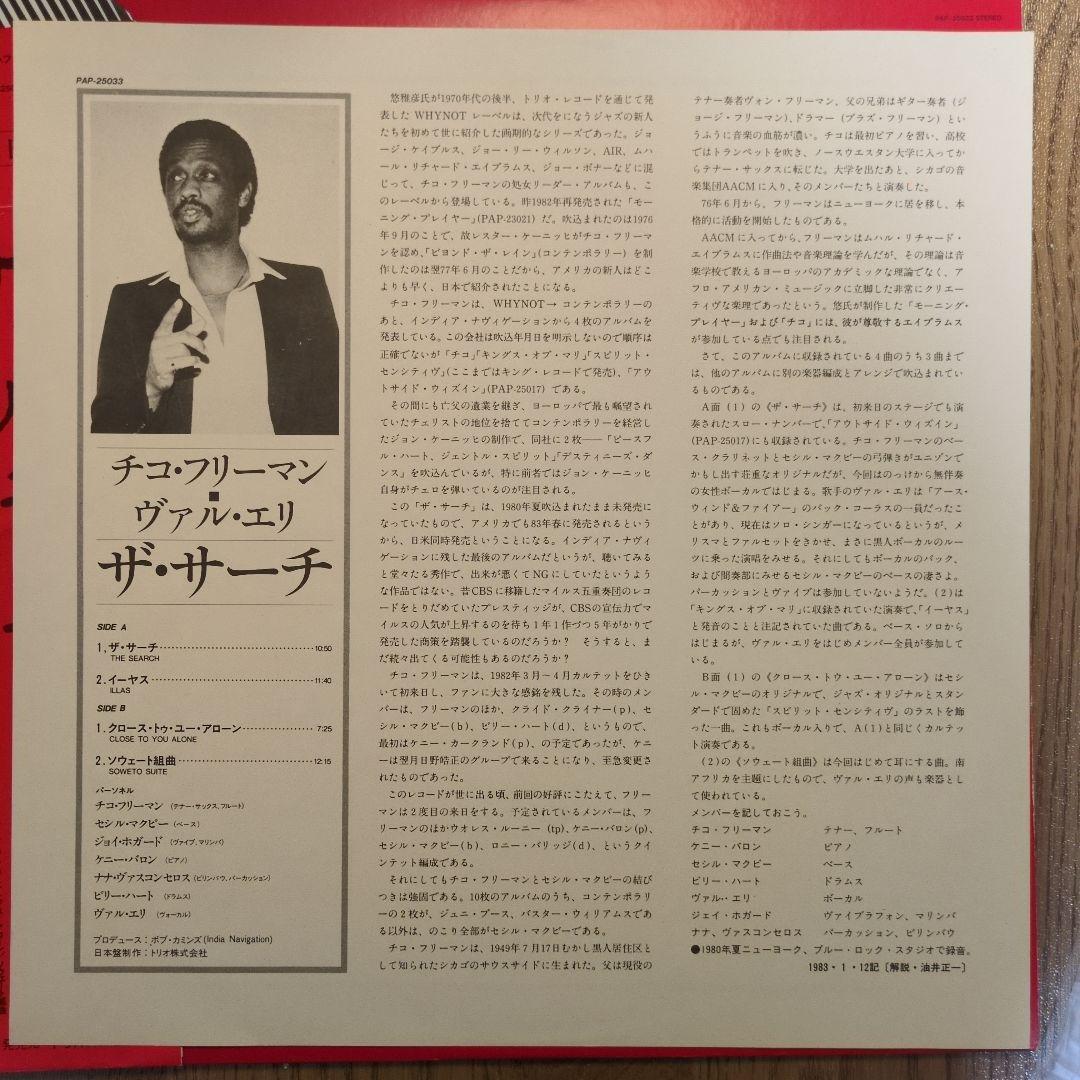 PAP-25033 STEREO
PAP-25033
チコ・フリーマン
■
ヴァル・エリ
ザ・サーチ
SIDE A
1.ザ・サーチ……10:50
THE SEARCH
2.イーヤス……11:40
ILLAS
SIDE B
1.クロース・トゥ・ユー・アローン……7:25
CLOSE TO YOU ALONE
2.ソウェート組曲……12:15
SOWETO SUITE
パーソネル
チコ・フリーマン (テナー・サックス,フルート)
セシル・マクビー (ベース)
ジョイ・ホガード (ヴァイブ,マリンバ)
ケニー・バロン (ピアノ)
ナナ・ヴァスコンセロス (ビリンバウ,パーカッション)
ビリー・ハート (ドラムス)
ヴァル・エリ (ヴォーカル)
プロデュース:ボブ・カミンズ(India Navigation)
日本盤制作:トリオ株式会社
悠雅彦氏が1970年代の後半、トリオ・レコードを通じて発
表した WHYNOT レーベルは、次代をになうジャズの新人
たちを初めて世に紹介した画期的なシリーズであった。ジョ
ージ・ケイブルス、ジョー・リー・ウィルソン、AIR、ムハ
ール・リチャード・エイブラムス、ジョー・ボナーなどに混
じって、チコ・フリーマンの処女リーダー・アルバムも、こ
のレーベルから登場している。昨1982年再発売された「モー
ニング・プレイヤー」(PAP-23021) だ。吹込まれたのは1976
年9月のことで、故レスター・ケーニッヒがチコ・フリーマ
ンを認め、「ビヨンド・ザ・レイン」(コンテンポラリー) を制
作したのは翌77年6月のことだから、アメリカの新人はどこ
よりも早く、日本で紹介されたことになる。
チコ・フリーマンは、WHYNOT→ コンテンポラリーの
あと、インディア・ナヴィゲーションから4枚のアルバムを
発表している。この会社は吹込年月日を明示しないので順序は
正確でないが「チコ」「キングス・オブ・マリ」「スピリット・
センシティヴ」(ここまではキング・レコードで発売)、「アウ
トサイド・ウィズイン」(PAP-25017) である。
その間にも亡父の遺業を継ぎ、ヨーロッパで最も嘱望され
ていたチェリストの地位を捨ててコンテンポラリーを経営し
たジョン・ケーニッヒの制作で、同社に2枚――「ピースフ
ル・ハート、ジェントル・スピリット」「デスティニーズ・ダ
ンス」を吹込んでいるが、特に前者ではジョン・ケーニッヒ
自身がチェロを弾いているのが注目される。
この「ザ・サーチ」は、1980年夏吹込まれたまま未発売に
なっていたもので、アメリカでも83年春に発売されるという
から、日米同時発売ということになる。インディア・ナヴィ
ゲーションに残した最後のアルバムだというが、聴いてみる
と堂々たる秀作で、出来が悪くてNGにしていたというよう
な作品ではない。昔CBSに移籍したマイルス五重奏団のレコ
ードをとりだめていたプレスティッジが、CBSの宣伝力でマ
イルスの人気が上昇するのを待ち1年1作づつ5年がかりで
発売した商策を踏襲しているのだろうか? そうすると、ま
だ続々出てくる可能性もあるのだろうか?
チコ・フリーマンは、1982年3月〜4月カルテットをひき
いて初来日し、ファンに大きな感銘を残した。その時のメン
バーは、フリーマンのほか、クライド・クライナー(p)、セ
シル・マクビー(b)、ビリー・ハート(d)、というもので、
最初はケニー・カークランド(p)、の予定であったが、ケニ
ーは翌月日野皓正のグループで来ることになり、至急変更さ
れたものであった。
このレコードが世に出る頃、前回の好評にこたえて、フリー
マンは2度目の来日をする。予定されているメンバーは、フ
リーマンのほかウオレス・ルーニー (tp)、ケニー・バロン(p)、
セシル・マクビー(b)、ロニー・バリッジ(d)、というクイ
ンテット編成である。
それにしてもチコ・フリーマンとセシル・マクビーの結び
つきは強固である。10枚のアルバムのうち、コンテンポラリ
ーの2枚が、ジュニ・ブース、バスター・ウィリアムスであ
る以外は、のこり全部がセシル・マクビーである。
チコ・フリーマンは、1949年7月17日むかし黒人居住区と
して知られたシカゴのサウスサイドに生まれた。父は現役の
テナー奏者ヴォン・フリーマン、父の兄弟はギター奏者 (ジ
ョージ・フリーマン)、ドラマー (ブラズ・フリーマン) とい
うふうに音楽の血筋が濃い。チコは最初ピアノを習い、高校
ではトランペットを吹き、ノースウエスタン大学に入ってか
らテナー・サックスに転じた。大学を出たあと、シカゴの音
楽集団AACMに入り、そのメンバーたちと演奏した。
76年6月から、フリーマンはニューヨークに居を移し、本
格的に活動を開始したものである。
AACMに入ってから、フリーマンはムハル・リチャード・
エイブラムスに作曲法や音楽理論を学んだが、その理論は音
楽学校で教えるヨーロッパのアカデミックな理論でなく、ア
フロ・アメリカン・ミュージックに立脚した非常にクリエー
ティヴな楽理であったという。悠氏が制作した「モーニング・
プレイヤー」および「チコ」には、彼が尊敬するエイブラムス
が参加している点でも注目される。
さて、このアルバムに収録されている4曲のうち3曲まで
は、他のアルバムに別の楽器編成とアレンジで吹込まれてい
るものである。
A面 (1) の《ザ・サーチ》は、初来日のステージでも演
奏されたスロー・ナンバーで、「アウトサイド・ウィズイン」
(PAP-25017)にも収録されている。チコ・フリーマンのベー
ス・クラリネットとセシル・マクビーの弓弾きがユニゾンで
かもし出す荘重なオリジナルだが、今回はのっけから無伴奏
の女性ボーカルではじまる。歌手のヴァル・エリは「アース・
ウィンド&ファイアー」のバック・コーラスの一員だったこ
とがあり、現在はソロ・シンガーになっているというが、メ
リスマとファルセットをきかせ、まさに黒人ボーカルのルー
ツに乗った演唱をみせる。それにしてもボーカルのバック、
および間奏部にみせるセシル・マクビーのベースの凄さよ。
パーカッションとヴァイブは参加していないようだ。(2)は
「キングス・オブ・マリ」に収録されていた演奏で、「イーヤス」
と発音のことと注記されていた曲である。ベース・ソロから
はじまるが、ヴァル・エリをはじめメンバー全員が参加して
いる。
B面 (1) の《クロース・トゥ・ユー・アローン》はセシ
ル・マクビーのオリジナルで、ジャズ・オリジナルとスタン
ダードで固めた「スピリット・センシティヴ」のラストを飾
った一曲。これもボーカル入りで、A(1)と同じくカルテッ
ト演奏である。
(2)の《ソウェート組曲》は今回はじめて耳にする曲。南
アフリカを主題にしたもので、ヴァル・エリの声も楽器とし
て使われている。
メンバーを記しておこう。
チコ・フリーマン テナー、フルート
ケニー・バロン ピアノ
セシル・マクビー ベース
ビリー・ハート ドラムス
ヴァル・エリ ボーカル
ジェイ・ホガード ヴァイブラフォン、マリンバ
ナナ、ヴァスコンセロス パーカッション、ビリンバウ
●1980年夏ニューヨーク、ブルー・ロック・スタジオで録音。
1983・1・12記〔解説・油井正一〕